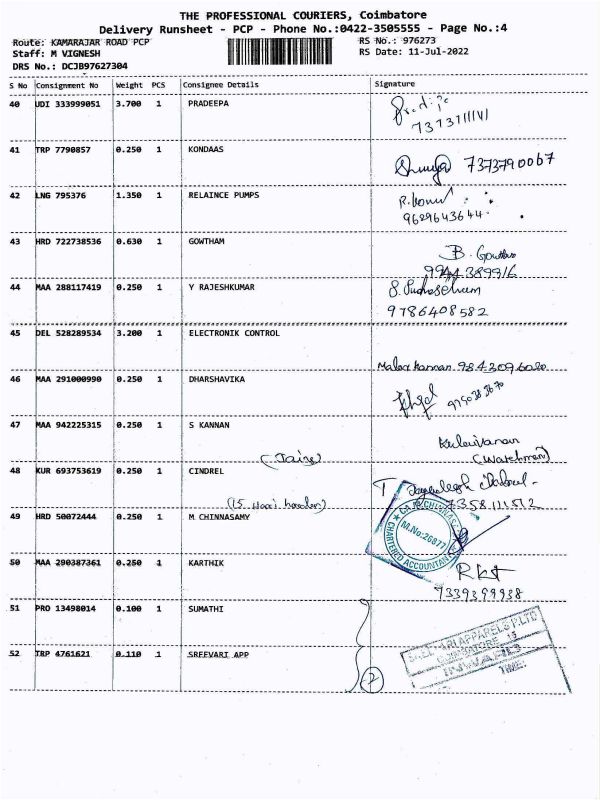 THE PROFESSIONAL COURIERS, Coimbatore
Delivery Runsheet - PCP - Phone No.:0422-3505555 - Page No.:4
Route: KAMARAJAR ROAD PCP RS No.: 976273
Staff: M VIGNESH RS Date: 11-Jul-2022
DRS No.: DCJB97627304
S No Consignment No Weight PCS Consignee Details Signature
40 UDI 333999051 3.700 1 PRADEEPA
7373711141
41 TRP 7790857 0.250 1 KONDAAS
7373790067
42 LNG 795376 1.350 1 RELAINCE PUMPS
9629643644
43 HRD 722738536 0.630 1 GOWTHAM
B. Gowtham
9944389916
44 MAA 288117419 0.250 1 Y RAJESHKUMAR
9786408582
45 DEL 528289534 3.200 1 ELECTRONIK CONTROL
9843096020
46 MAA 291000990 0.250 1 DHARSHAVIKA
47 MAA 942225315 0.250 1 S KANNAN
Kulaivanan
(Watchman)
48 KUR 693753619 0.250 1 CINDREL
7358111572
49 HRD 50072444 0.250 1 M CHINNASAMY
M.No:26877
CHARTERED ACCOUNTANT
50 MAA 290387361 0.250 1 KARTHIK
7339399938
51 PRO 13498014 0.100 1 SUMATHI
52 TRP 4761621 0.110 1 SREEVARI APP
2
APPARELS P.LTD
COIMBATORE
TIME: